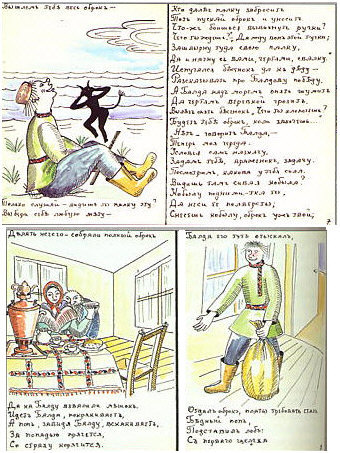 Вышлем тебѣ весь оброкъ —
Только слушай — видишь ты палку эту?
Выбери себѣ любую мѣту —
Кто далѣе палку забросит
Тотъ пускай оброкъ и уносит
Что-жъ боишься вывихнуть ручки?
Чего ты ждешь? Да жду вонъ этой тучки;
Зашвырну туда свою палку,
Да и начну съ вами, чертями, свалку.
Испугался бѣсенокъ да къ дѣду —
Разсказывать про Балдову побѣду.
А Балда надъ моремъ опять шумитъ
Да чертямъ веревкой грозитъ.
Вылѣзъ опять бѣсенокъ, Что ты хлопочешь?
Будетъ тебѣ оброкъ, коли захочешь...
— Нѣтъ, — говоритъ Балда, —
Теперь моя череда.
Условия самъ назначу,
Задамъ тебѣ, враженокъ, задачу.
Посмотримъ, какова у тебя сила.
Видишь тамъ сивая кобыла?
Кобылу подними-тка ты,
Да неси ее полверсты;
Снесешь кобылу, оброкъ ужъ твой;
7
Дѣлать нечего — собрали полный оброкъ
Да на Балду взвалили мѣшокъ.
Идетъ Балда, покрякиваетъ,
А попъ, завидя Балду, вскакиваетъ,
За попадью прячется,
Со страху корячится.
Балда его тутъ отыскалъ,
Отдалъ оброкъ, платы требовать сталъ
Бѣдный попъ,
Подставилъ лобъ:
Съ перваго щелчка